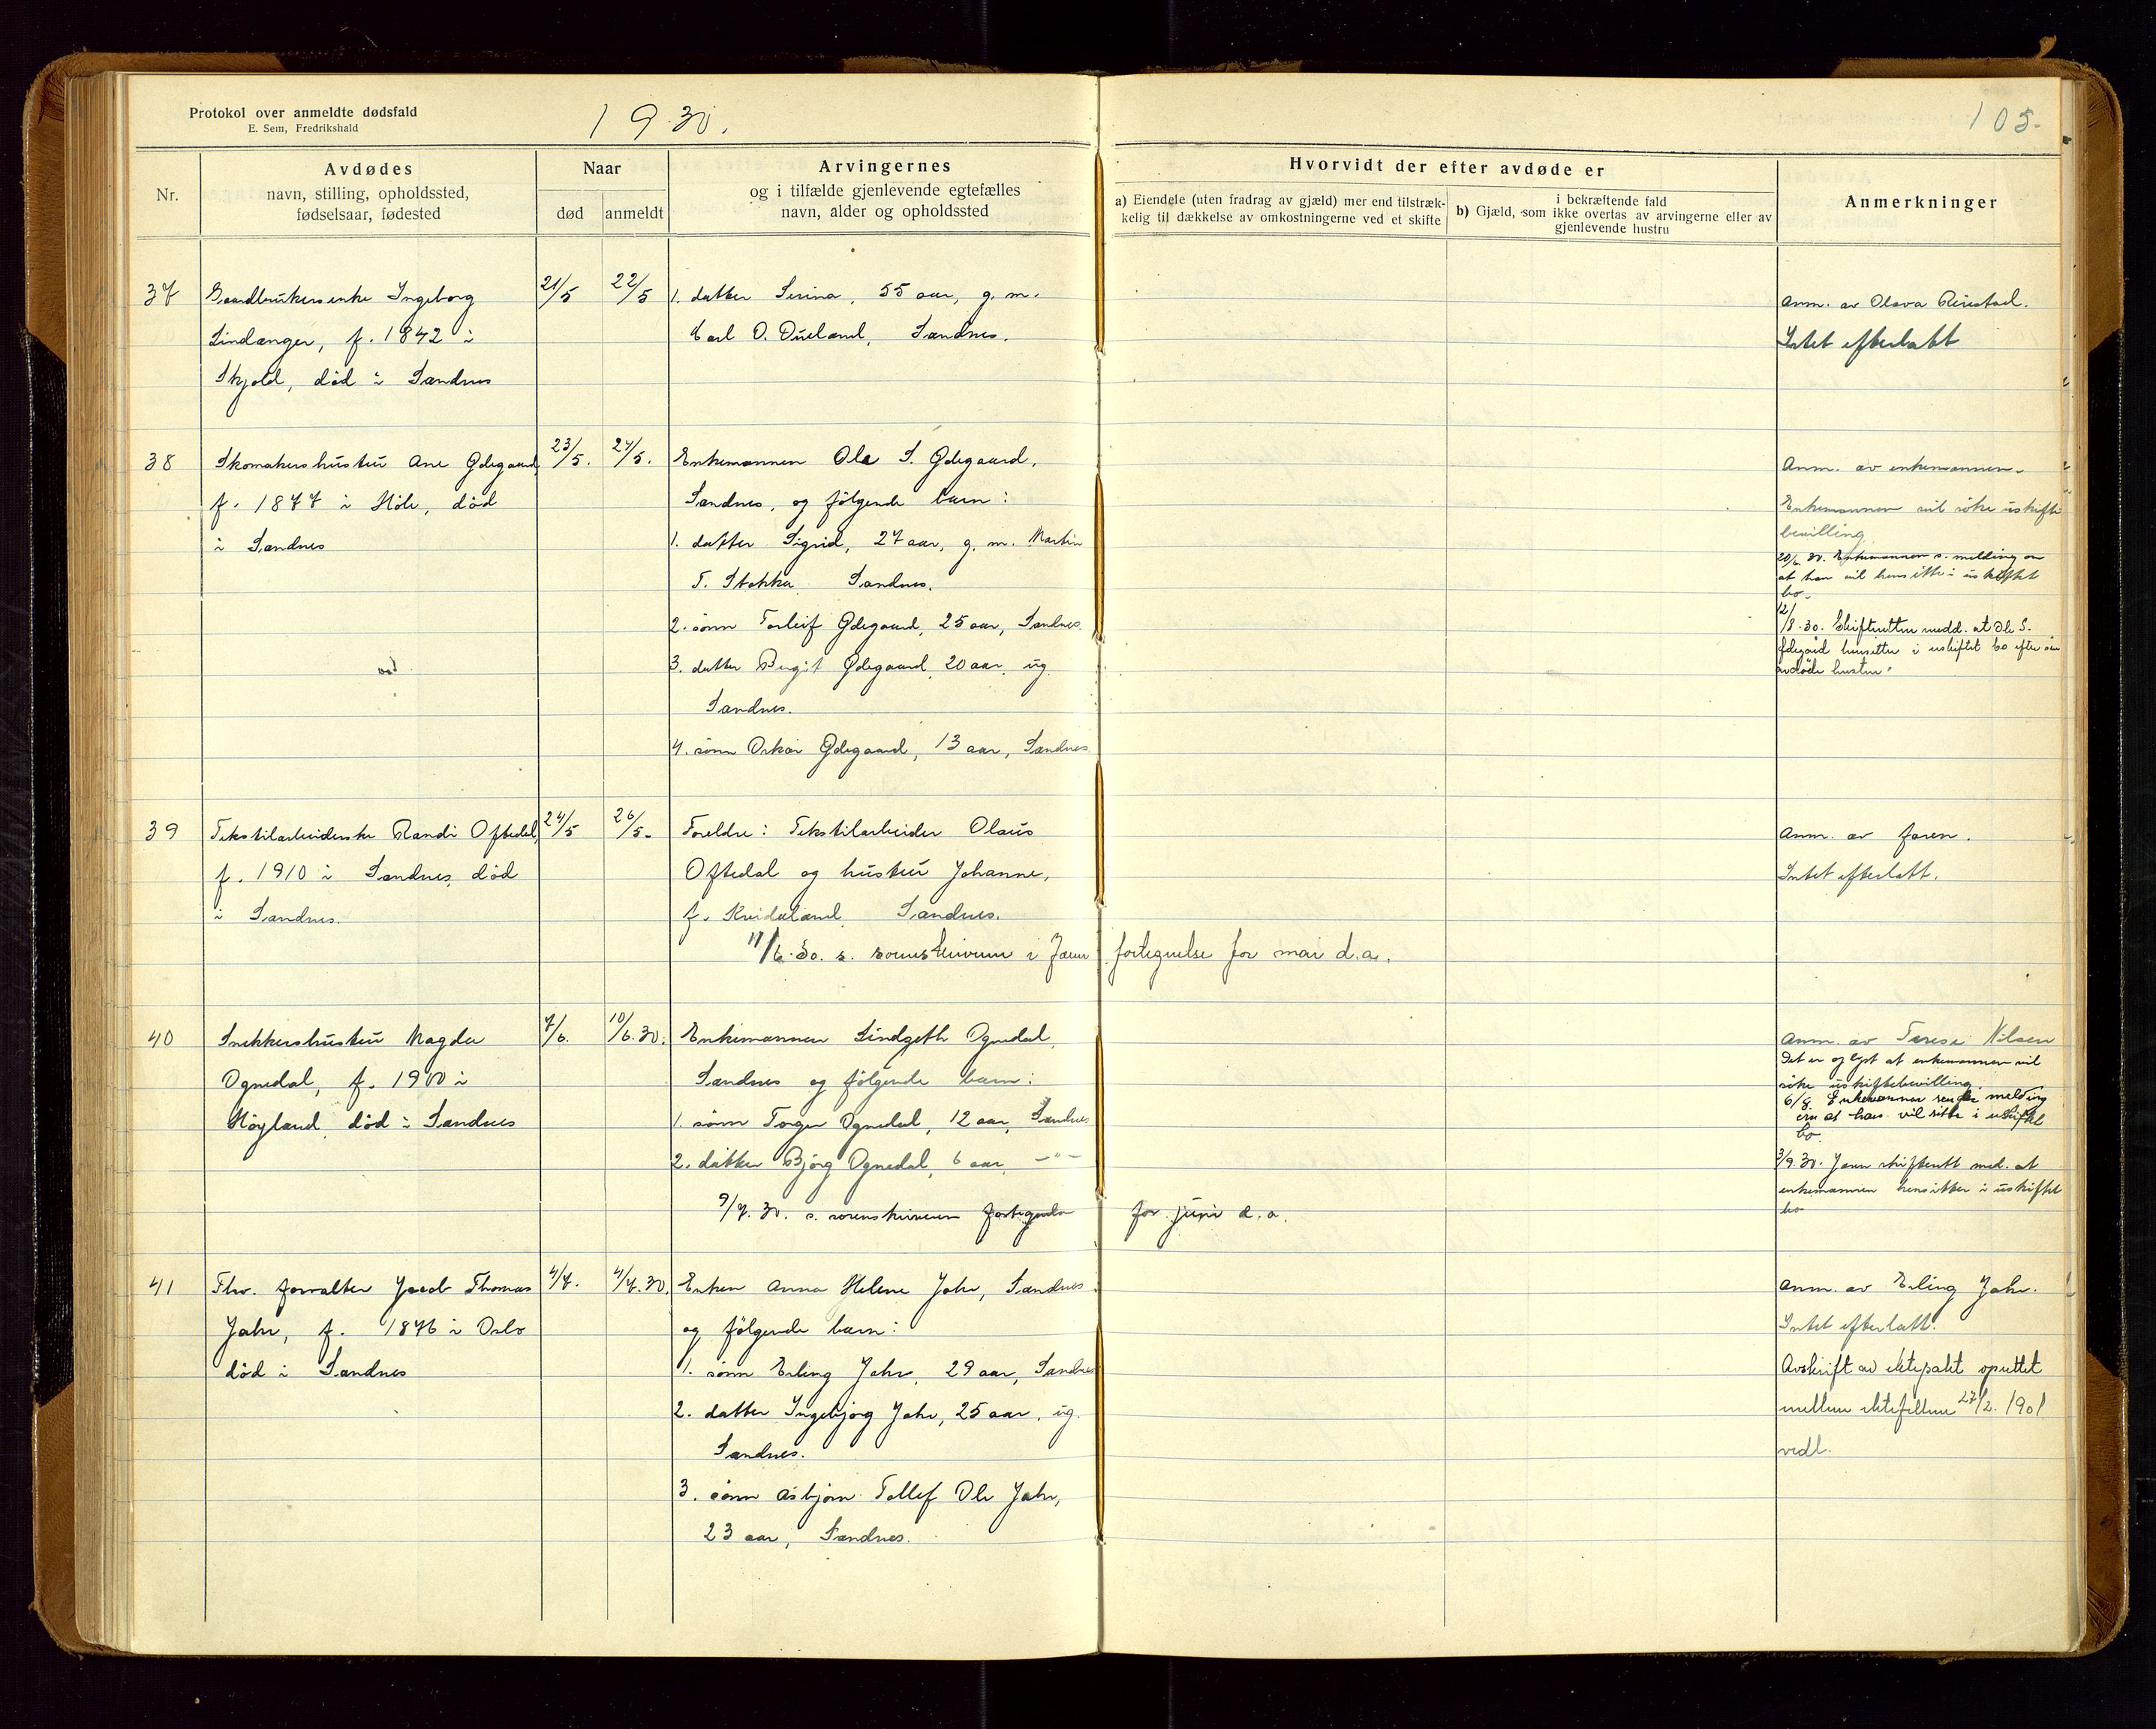 Protokol over anmeldte dødsfald
E. Sem, Fredrikshald
1930.
105.
Nr.
Avdødes
navn, stilling, opholdssted,
fødselsaar, fødested
Naar
død
anmeldt
Arvingernes
og i tilfælde gjenlevende egtefælles
navn, alder og opholdssted
Hvorvidt der efter avdøde er
a) Eiendele (uten fradrag av gjæld) mer end tilstræk-
kelig til dækkelse av omkostningerne ved et skifte
i bekræftende fald
b) Gjæld, som ikke overtas av arvingerne eller av
gjenlevende hustru
Anmerkninger
37
Gaardbrukerenke Ingeborg
Lindanger, f. 1842 i
Skjold, död i Sandnes
21/5
22/5
1. datter Serina, 55 aar, g. m.
Carl O. Dueland, Sandnes.
Anm. av Olava
Intet efterlatt
38
Skomakerhustru Ane Ødegaard,
f. 1877 i Höle, död
i Sandnes
23/5.
24/5.
Enkemannen Ole S. Ødegaard,
Sandnes, og følgende barn:
1. datter Sigrid, 27 aar, g. m. Martin
T. Stokka Sandnes.
2. sönn Torleif Ødegaard, 25 aar, Sandnes.
3. datter Bergit Ødegaard, 20 aar, ug.
Sandnes.
4. sönn Oskar Ødegaard, 13 aar, Sandnes
Anm. av enkemannen.
Enkemannen vil söke uskifte
bevilling.
20/6. 30. Enkemannen s. melding om
at han vil hensitte i uskiftet
bo.
12/8. 30. Skifteretten medd. at Ole S.
Ødegård hensitter i uskiftet bo efter sin
avdöde hustru.
39
Tekstilarbeiderske Randi Oftedal,
f. 1910 i Sandnes, död
i Sandnes.
24/5
26/5.
Foreldre: Tekstilarbeider Olaus
Oftedal og hustru Johanne,
f. Kvidaland Sandnes.
11/6.30. s. sorenskriveren i Jæren fortegnelse for mai d.a.
Anm. av faren.
Intet efterlatt.
40
Snekkerhustru Magda
Ognedal, f. 1900 i
Höyland, död i Sandnes
7/6.
10/6.30.
Enkemannen Lindgeth Ognedal,
Sandnes og følgende barn:
1. sönn Torger Ognedal, 12 aar, Sandnes
2. datter Bjørg Ognedal, 6 aar, -"-
9/7. 30. s. sorenskriveren fortegnelse for juni d. a.
Anm. av Terese Nilsen
Det er oplyst at enkemannen vil
söke uskiftebevilling.
6/8. Enkemannen sender melding
om at han vil sitte i uskiftet
bo.
3/9.30. Jæren skifterett med. at
enkemannen hensitter i uskiftet
bo
41
Fhv. forvalter Jacob Thomas
Jahr, f. 1876 i Oslo
död i Sandnes
4/7.
4/7.30.
Enken Anna Helene Jahr, Sandnes.
og følgende barn:
1. sönn Erling Jahr, 29 aar, Sandnes
2. datter Ingebjørg Jahr, 25 aar, ug.
Sandnes.
3. sönn Asbjørn Tollef Ole Jahr,
23 aar, Sandnes.
Anm. av Erling Jahr.
Intet efterlatt.
Avskrift av ektepakt oprettet
mellem ektefellene 27/2. 1901
vedl.